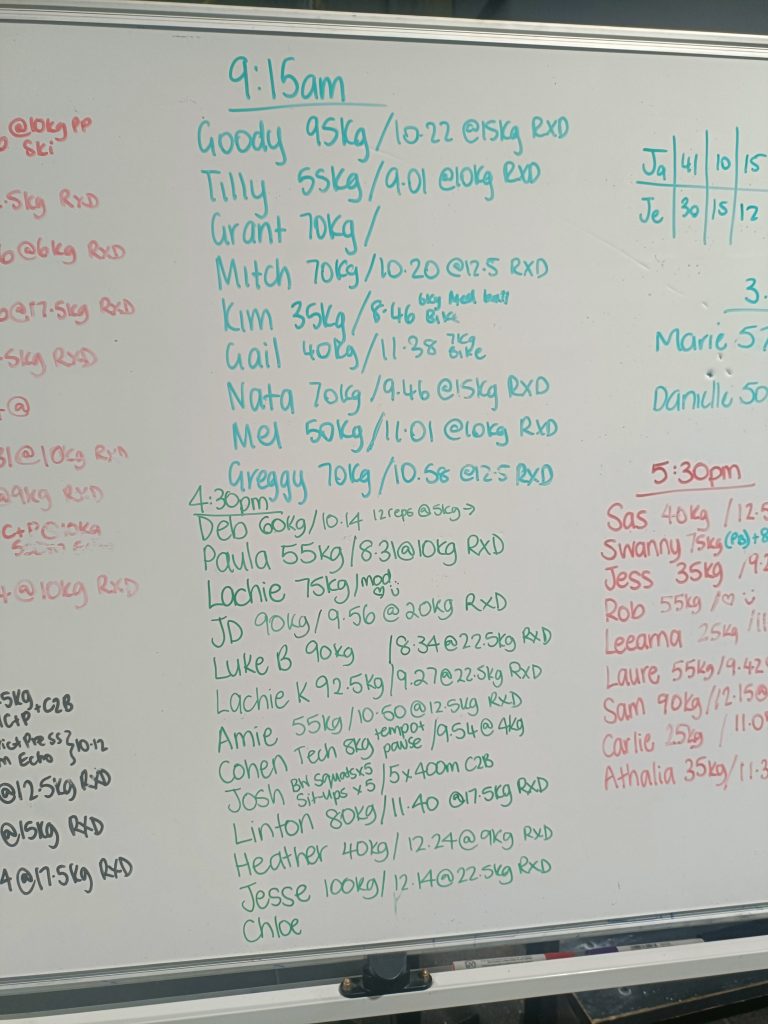 @10kg PP
Ski
.5kg RXD
@6kg RXD
@17.5kg RXD
.5kg RXD
@
31@10kg RXD
@9kg RXD
C+P@10kg
@10kg RXD
5kg
+C2B
C+P
Press
10.12
Echo
@12.5kg RXD
@15kg RXD
4@17.5kg RXD
9:15am
Goody 95kg/10.22 @15kg RXD
Tilly 55kg/9.01 @10kg RXD
Grant 70kg/
Mitch 70kg/10.20 @12.5 RXD
Kim 35kg/8.46 6kg Med ball Bike
Gail 40kg/11.38 7kg Bike
Nata 70kg/9.46 @15kg RXD
Mel 50kg/11.01 @10kg RXD
Greggy 70kg/10.58 @12.5 RXD
4:30pm
Deb 60kg/10.14 12reps @5kg→
Paula 55kg/8.31@10kg RXD
Lachie 75kg/mod
JD 90kg/9.56 @ 20kg RXD
Luke B 90kg /8.34@22.5kg RXD
Lachie K 92.5kg/9.27@22.5kg RXD
Amie 55kg/10.50@12.5kg RXD
Cohen Tech 8kg tempo+ pause /9.54@4kg
Josh BW Squats x5 Sit-ups x5 /5x400m C2B
Linton 80kg/11.40 @17.5kg RXD
Heather 40kg/12.24@9kg RXD
Jesse 100kg/12.14@22.5kg RXD
Chloe
Ja 41 10 15
Je 30 15 12
3.
Marie 57
Danielle 50
5:30pm
Sas 40kg /12.5
Swanny 75kg (PB)+8
Jess 35kg /9.2
Rob 55kg/
Leeama 25kg /11
Laure 55kg/9.42
Sam 90kg/12.15@
Carlie 25kg /11.0
Athalia 35kg/11.3